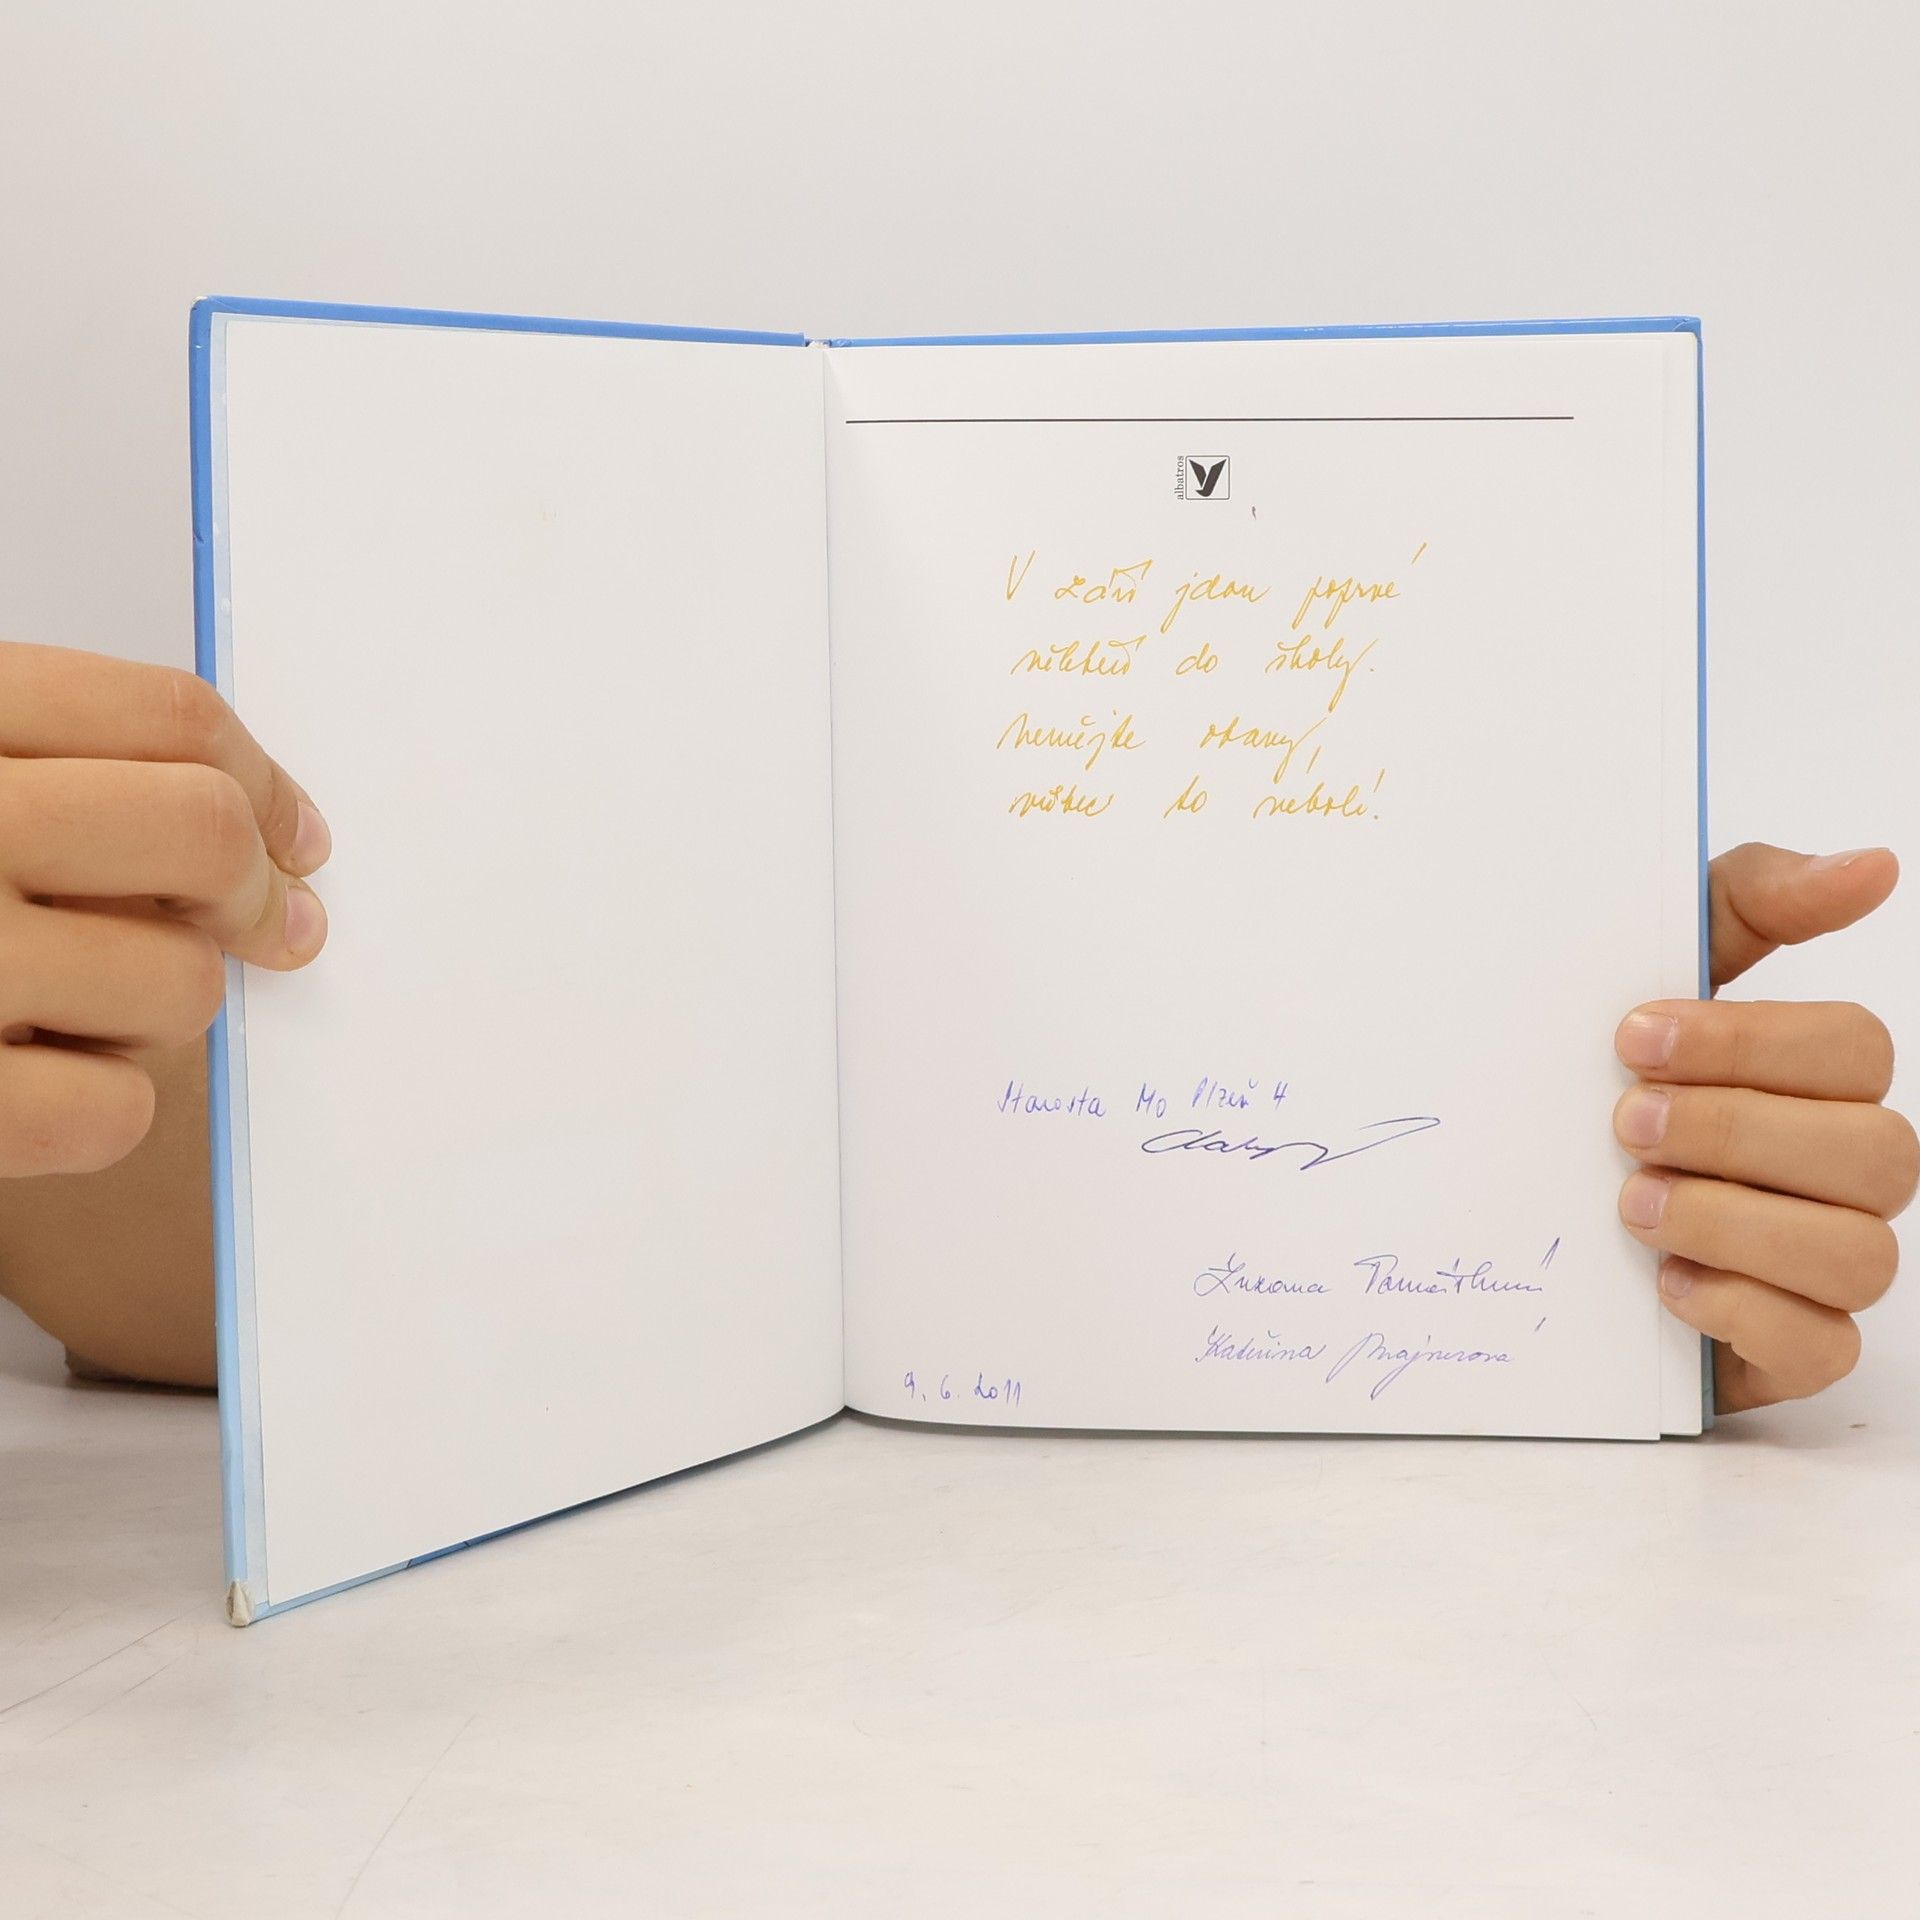 albatros
V září jdou poprvé
někteří do školy.
Nemějte obavy,
vůbec to nebolí!
Starosta MO Plzeň 4
Zuzana
Kateřina Majnerová
9. 6. 2011